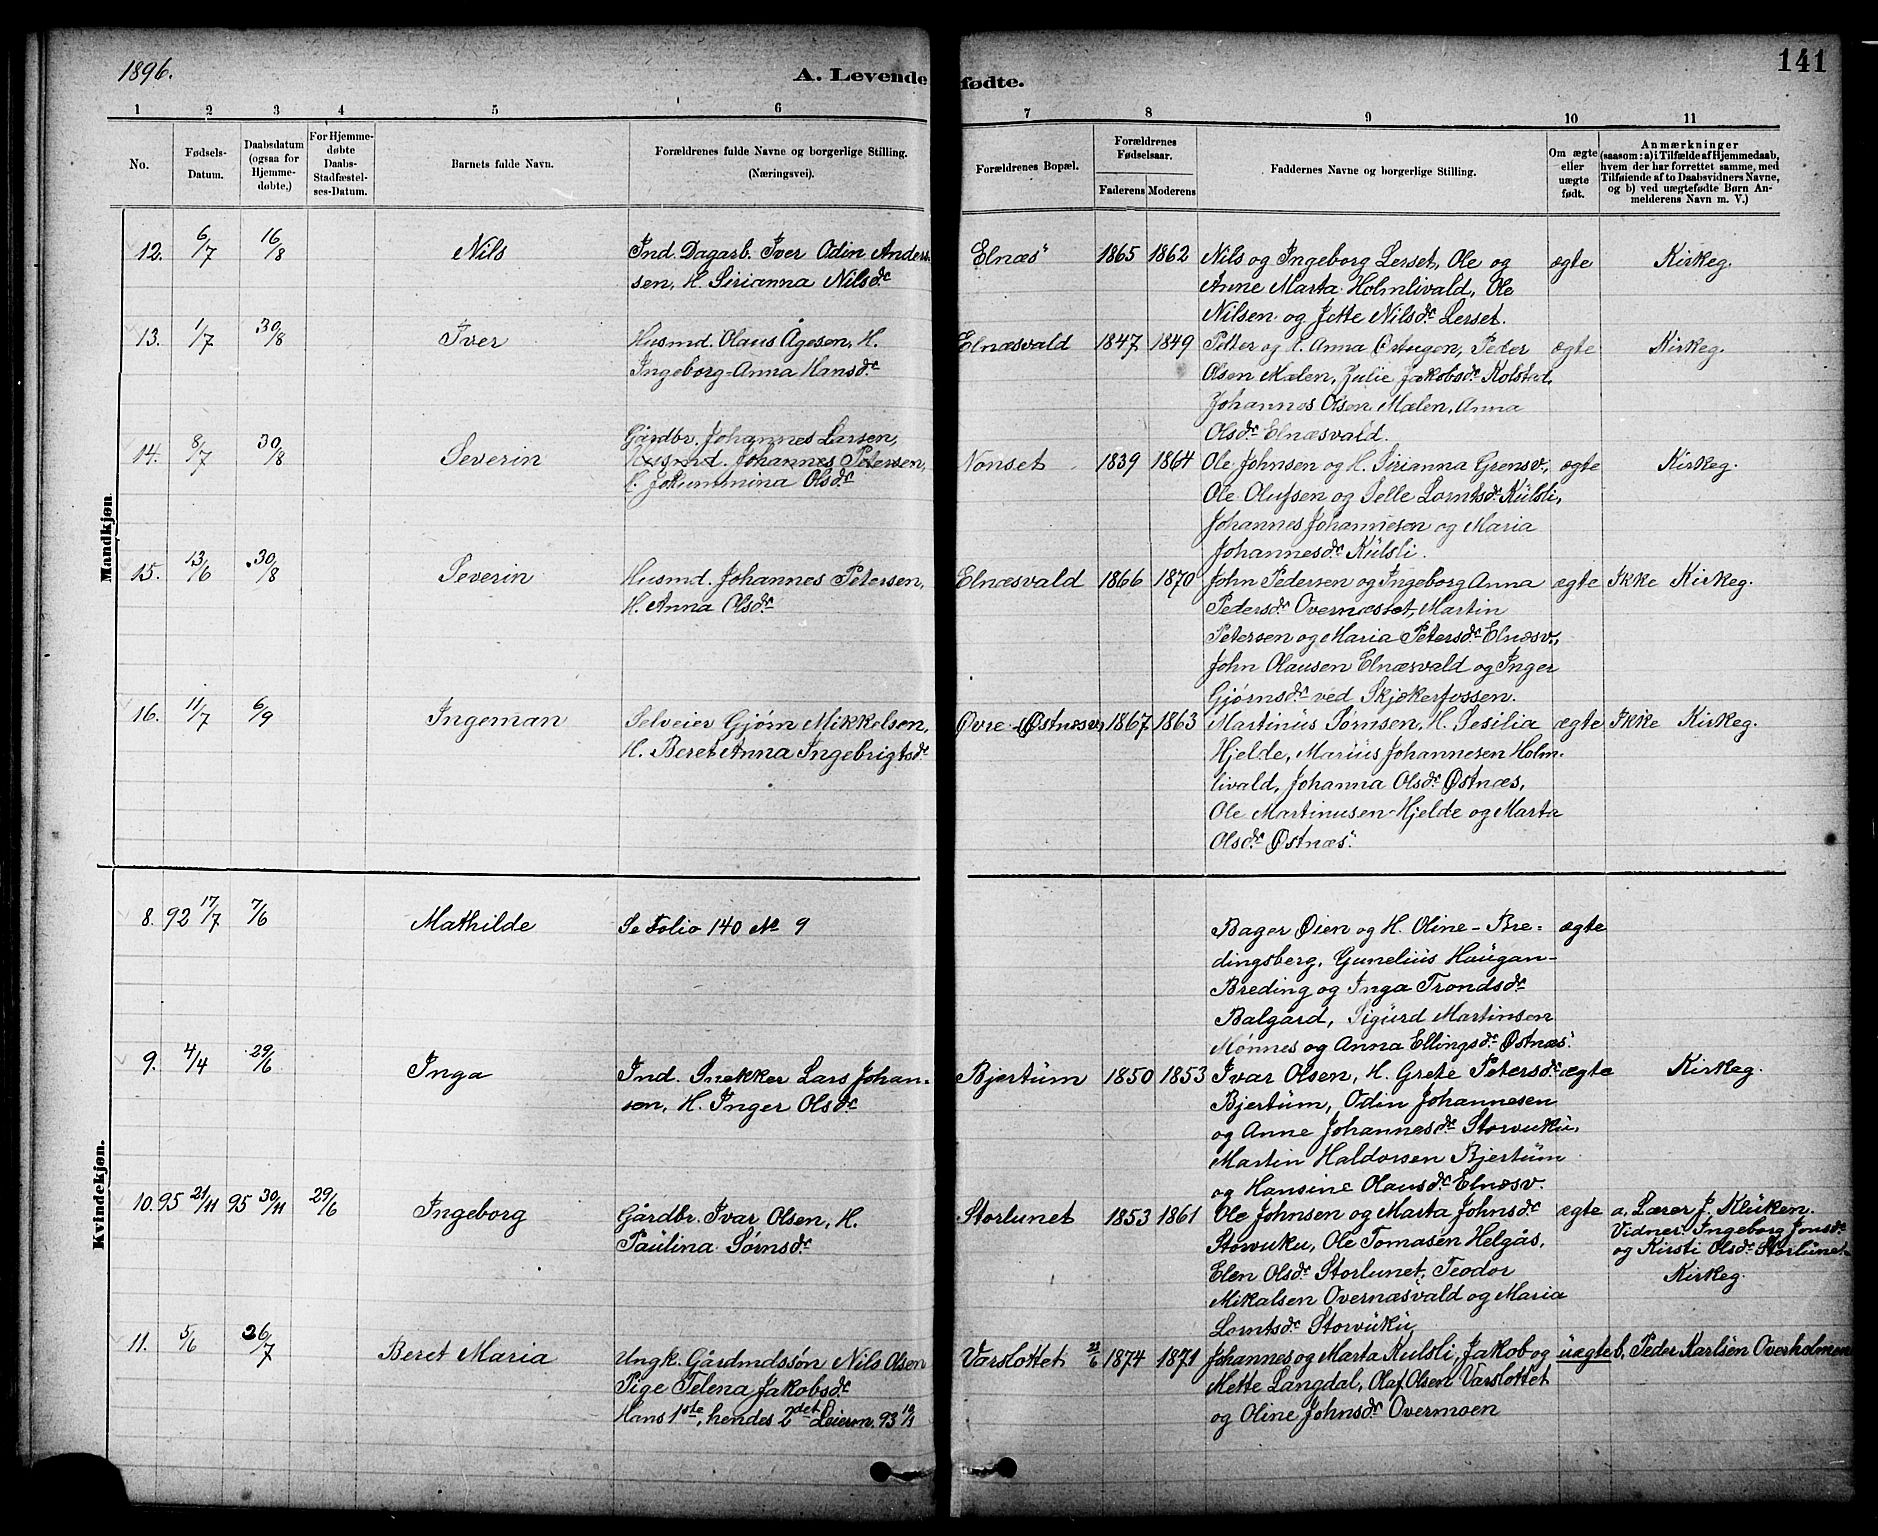 1896.
A. Levende fødte.
141
1 2 3 4 5 6 7 8 9 10 11
No.
Fødsels-
Datum.
Daabsdatum
(ogsaa for
Hjemme-
døbte,)
For Hjemme-
døbte
Daabs-
Stadfæstel-
ses-Datum.
Barnets fulde Navn.
Forældrenes fulde Navne og borgerlige Stilling.
(Næringsvei).
Forældrenes Bopæl.
Forældrenes
Fødselsaar.
Faderens Moderens
Faddernes Navne og borgerlige Stilling.
Om ægte
eller
uægte
født.
Anmærkninger
(saasom: a) i Tilfælde af Hjemmedaab,
hvem der har forrettet samme, med
Tilføiende af to Daabsvidners Navne,
og b) ved uægtefødte Børn An-
melderens Navn m. V.)
Mandkjøn.
12. 6/7 16/8 Nils
Ind. Dagarb. Iver Odin Anders-
sen, H. Sirianna Nilsdr
Elnæs 1865 1862
Nils og Ingeborg Lerset, Ole og
Anne Marta Holmlivald, Ole
Nilsen og Jette Nilsdr Lerset.
ægte Kirkeg.
13. 1/7 30/8 Iver
Husmd. Olaus Ågesen, H.
Ingeborg-Anna Hansdr
Elnæsvald 1847 1849
Petter og H. Anna Østugen, Peder
Olsen Mælen, Julie Jakobsdr Kolstad,
Johannes Olsen Mælen, Anna
Olsdr Elnæsvald.
ægte Kirkeg.
14. 8/7 30/8 Severin
Gårdbr. Johannes Larsen,
Husmd. Johannes Petersen,
H. Jokummina Olsdr
Nonset 1839 1864
Ole Johnsen og H. Sirianna Grensv.,
Ole Olufsen og Selle Lorntsdr Kulsli,
Johannes Johannesen og Maria
Johannesdr Kulsli.
ægte Kirkeg.
15. 13/6 30/8 Severin
Husmd. Johannes Petersen,
H. Anna Olsdr
Elnæsvald 1866 1870
John Pedersen og Ingeborg Anna
Pedersdr Overnæsset, Martin
Petersen og Maria Petersdr Elnæsv.,
John Olausen Elnæsvald og Inger
Gjørnsdr ved Skjækerfossen.
ægte Ikke Kirkeg.
16. 11/7 6/9 Ingeman
Selveier Gjørn Mikkelsen,
H. Beret Anna Ingebrigtsdr
Øvre-Østnæsv. 1867 1863
Martinus Sørnsen, H. Sesilia
Hjelde, Marius Johannesen Holm-
livald, Johanna Olsdr Østnæs,
Ole Martinusen Hjelde og Marta
Olsdr Østnæs.
ægte Ikke Kirkeg.
Kvindekjøn.
8. 92 17/7 7/6 Mathilde
Se Folio 140 No 9
Bager Øien og H. Oline-Bre-
dingsberg, Gunelius Haugan-
Breding og Inga Trondsdr
Balgård, Sigurd Martinsen
Mønnes og Anna Ellingsdr Østnæs.
ægte
9. 4/4 29/6 Inga
Ind. Snekker Lars Johan-
sen, H. Inger Olsdr
Bjertum 1850 1853
Ivar Olsen, H. Grete Petersdr
Bjertum, Odin Johannesen
og Anne Johannesdr Storvuku,
Martin Haldorsen Bjertum
og Hansine Olausdr Elnæsv.
ægte Kirkeg.
10. 95 21/11 95 30/11 29/6 Ingeborg
Gårdbr. Ivar Olsen, H.
Paulina Sørnsdr
Storlunet 1853 1861
Ole Johnsen og Marta Johnsdr
Storvuku, Ole Tomasen Helgås,
Elen Olsdr Storlunet, Teodor
Mikalsen Overnæsvald og Maria
Lorntsdr Storvuku
ægte a, Lærer J. Kluken.
Vidner: Ingeborg Jonsdr
og Kirsti Olsdr Storlunet
Kirkeg.
11. 5/6 26/7 Beret Maria
Ungk. Gårdmdssøn Nils Olsen
Pige Telena Jakobsdr
Hans 1ste, hendes 2det Leierm.
Varslottet 1874 1871
Johannes og Marta Kulsli, Jakob og
Mette Langdal, Olaf Olsen Varslottet
og Oline Johnsdr Overmoen
uægte b, Peder Karlsen Overholmen